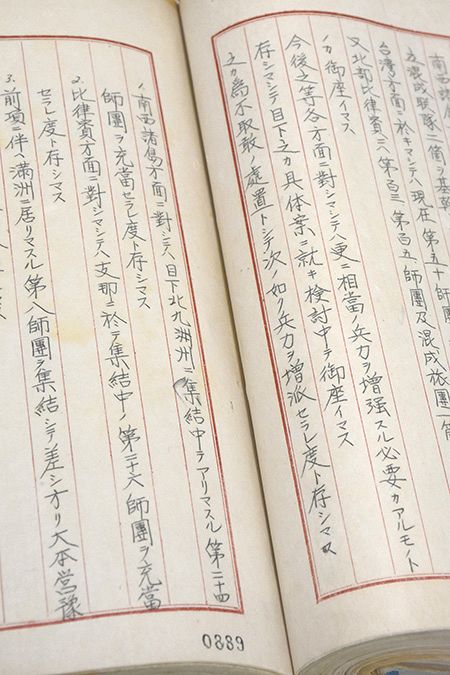 南西諸島方面ニ
混成聯隊二箇ヲ基幹
台湾方面ニ於キマシテハ現在第五十師團
又北部比律賓ニハ第百三、第百五師團及混成旅團一箇
カ御座イマス
今後之等各方面ニ對シマシテハ更ニ相當ノ兵力ヲ増强スル必要カアルモノト
存シマシテ目下之カ具体案ニ就キ檢討中テ御座イマス
之カ為不取敢ノ處置トシテ次ノ如ク兵力ヲ増派セラレ度ト存シマス
1、南西諸島方面ニ對シテハ目下北九洲ニ集結中テアリマスル第二十四
師團ヲ充當セラレ度ト存シマス
2、比律賓方面ニ對シマシテハ支那ニ於テ集結中ノ第二十六師團ヲ充當
セラレ度ト存シマス
3、前項ニ伴ヘ滿洲ニ居リマスル第八師團ヲ集結シテ差シオリ大本營豫
0889